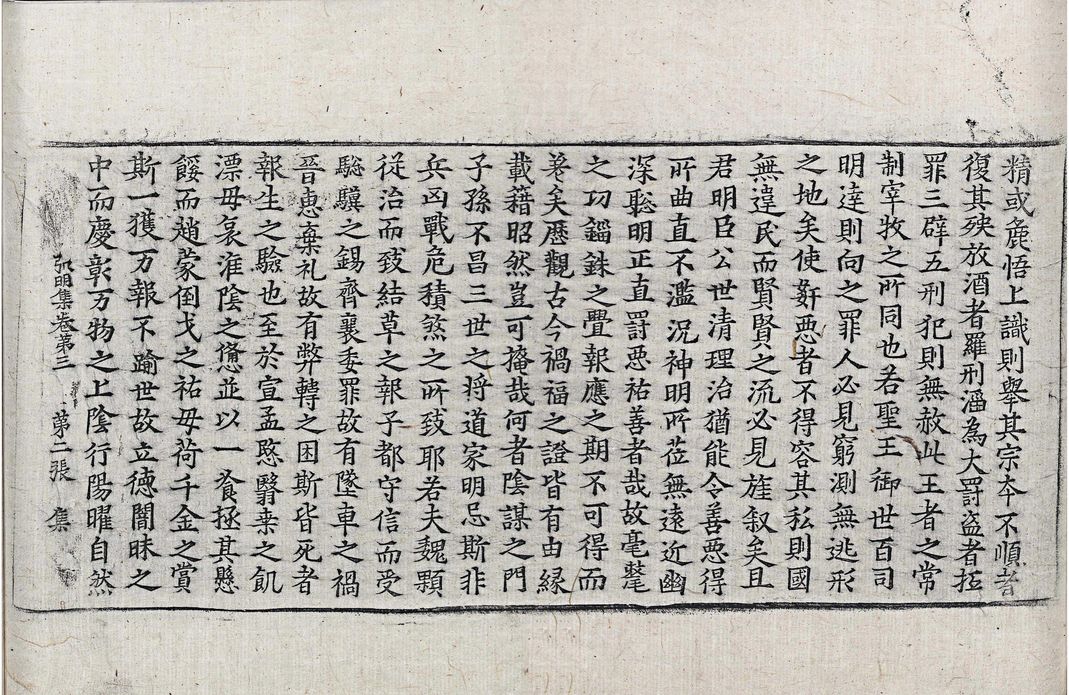 精或麁悟上識則舉其宗本不順者
復其殃放酒者羅刑滛為大罰盗者抂
罪三辟五刑犯則無赦此王者之常
制宰牧之所同也若聖王御世百司
明達則向之罪人必見窮測無逃形
之地矣使姧惡者不得容其私則國
無違民而賢賢之流必見旌叙矣且
君明臣公世清理治猶能令善惡得
所曲直不濫况神明所莅無遠近幽
深聡明正直罰惡祐善者哉故毫氂
之功錙銖之舋報應之期不可得而
差矣歷觀古今禍福之證皆有由緣
載籍昭然豈可掩哉何者陰謀之門
子孫不昌三世之将道家明忌斯非
兵凶戰危積煞之所致耶若夫魏顆
従治而致結草之報子都守信而受
驄驥之錫齊襄委罪故有墜車之禍
晉惠棄礼故有弊轉之困斯皆死者
報生之驗也至於宣孟愍翳桒之飢
漂毋哀淮陰之憊並以一飡拯其懸
餒而趙蒙倒戈之祐毋荷千金之賞
斯一獲万報不踰世故立德闇昧之
中而慶彰万物之上陰行陽曜自然
弘明集卷第三 第二張 集